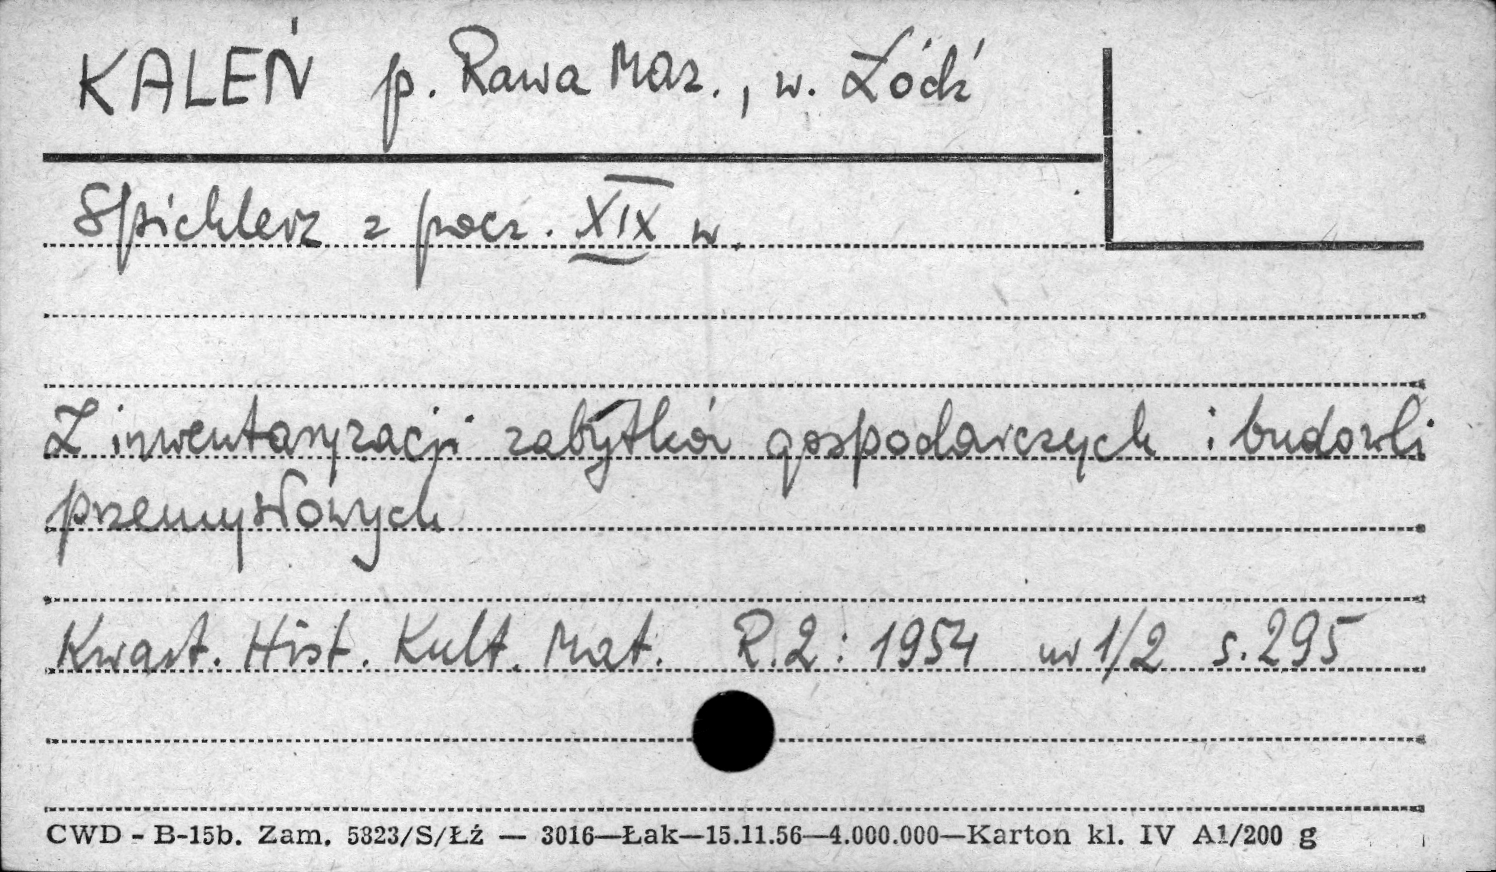 KALEŃ p. Rawa Maz., w. Łódź
Spichlerz z pocz. XIX w.
Z inwentaryzacji zabytków gospodarczych i budowli
przemysłowych
Kwart. Hist. Kult. Mat. R.2: 1954 nr 1/2 s. 295
CWD - B-15b. Zam. 5823/S/Łź — 3016—Łak—15.11.56—4.000.000—Karton kl. IV A1/200 g